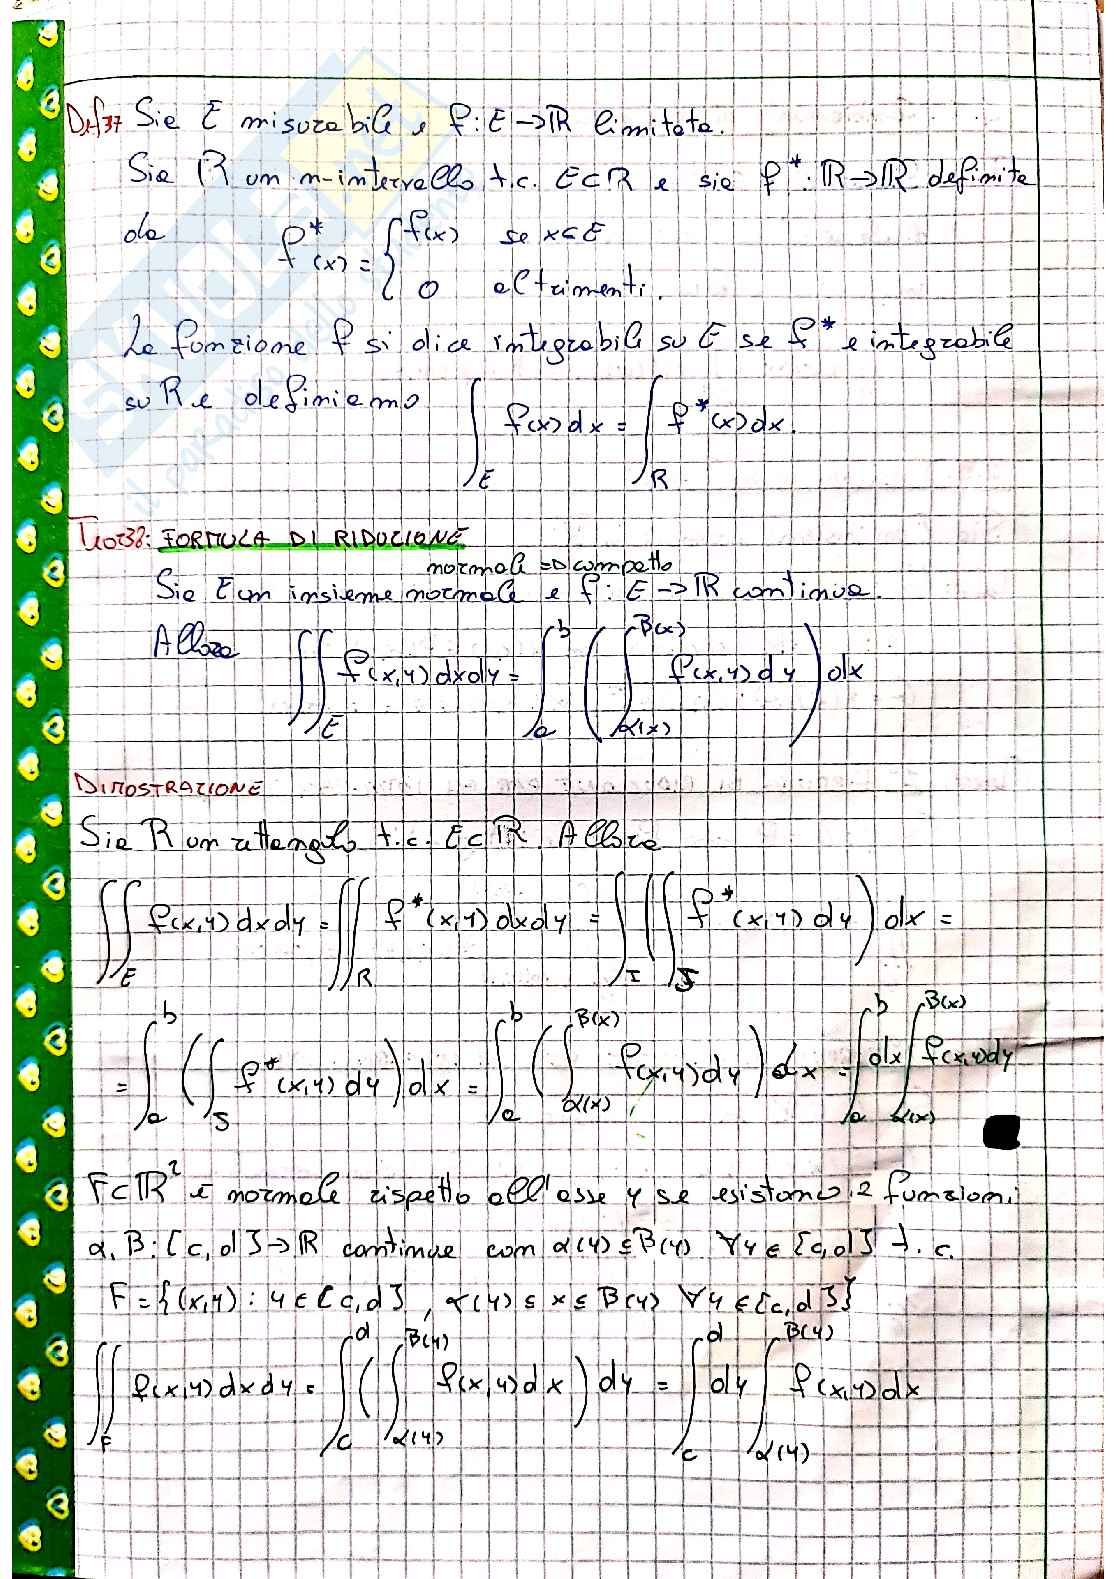 Def37 Sia E misurabile e f: E → ℝ limitata.
Sia R un n-intervallo t.c. E ⊂ R e sia f* : ℝ → ℝ definita
da f*(x) = { f(x) se x ∈ E
0 altrimenti.
La funzione f si dice integrabile su E se f* è integrabile
su R e definiamo ∫_E f(x) dx = ∫_R f*(x) dx.
Teor38: FORMULA DI RIDUZIONE
normale => compatto
Sia E un insieme normale e f: E → ℝ continua.
Allora ∬_E f(x,y) dx dy = ∫_a^b ( ∫_{α(x)}^{β(x)} f(x,y) dy ) dx
DIMOSTRAZIONE
Sia R un rettangolo t.c. E ⊂ ℝ. Allora
∬_E f(x,y) dx dy = ∬_R f*(x,y) dx dy = ∫_I ( ∫_J f*(x,y) dy ) dx =
= ∫_a^b ( ∫_J f*(x,y) dy ) dx = ∫_a^b ( ∫_{α(x)}^{β(x)} f(x,y) dy ) dx = ∫_a^b dx ∫_{α(x)}^{β(x)} f(x,y) dy
F ⊂ ℝ² è normale rispetto all'asse y se esistono 2 funzioni
α, β : [c, d] → ℝ continue con α(y) ≤ β(y) ∀y ∈ [c, d] t.c.
F = {(x,y) : y ∈ [c, d], α(y) ≤ x ≤ β(y) ∀y ∈ [c, d]}
∬_F f(x,y) dx dy = ∫_c^d ( ∫_{α(y)}^{β(y)} f(x,y) dx ) dy = ∫_c^d dy ∫_{α(y)}^{β(y)} f(x,y) dx